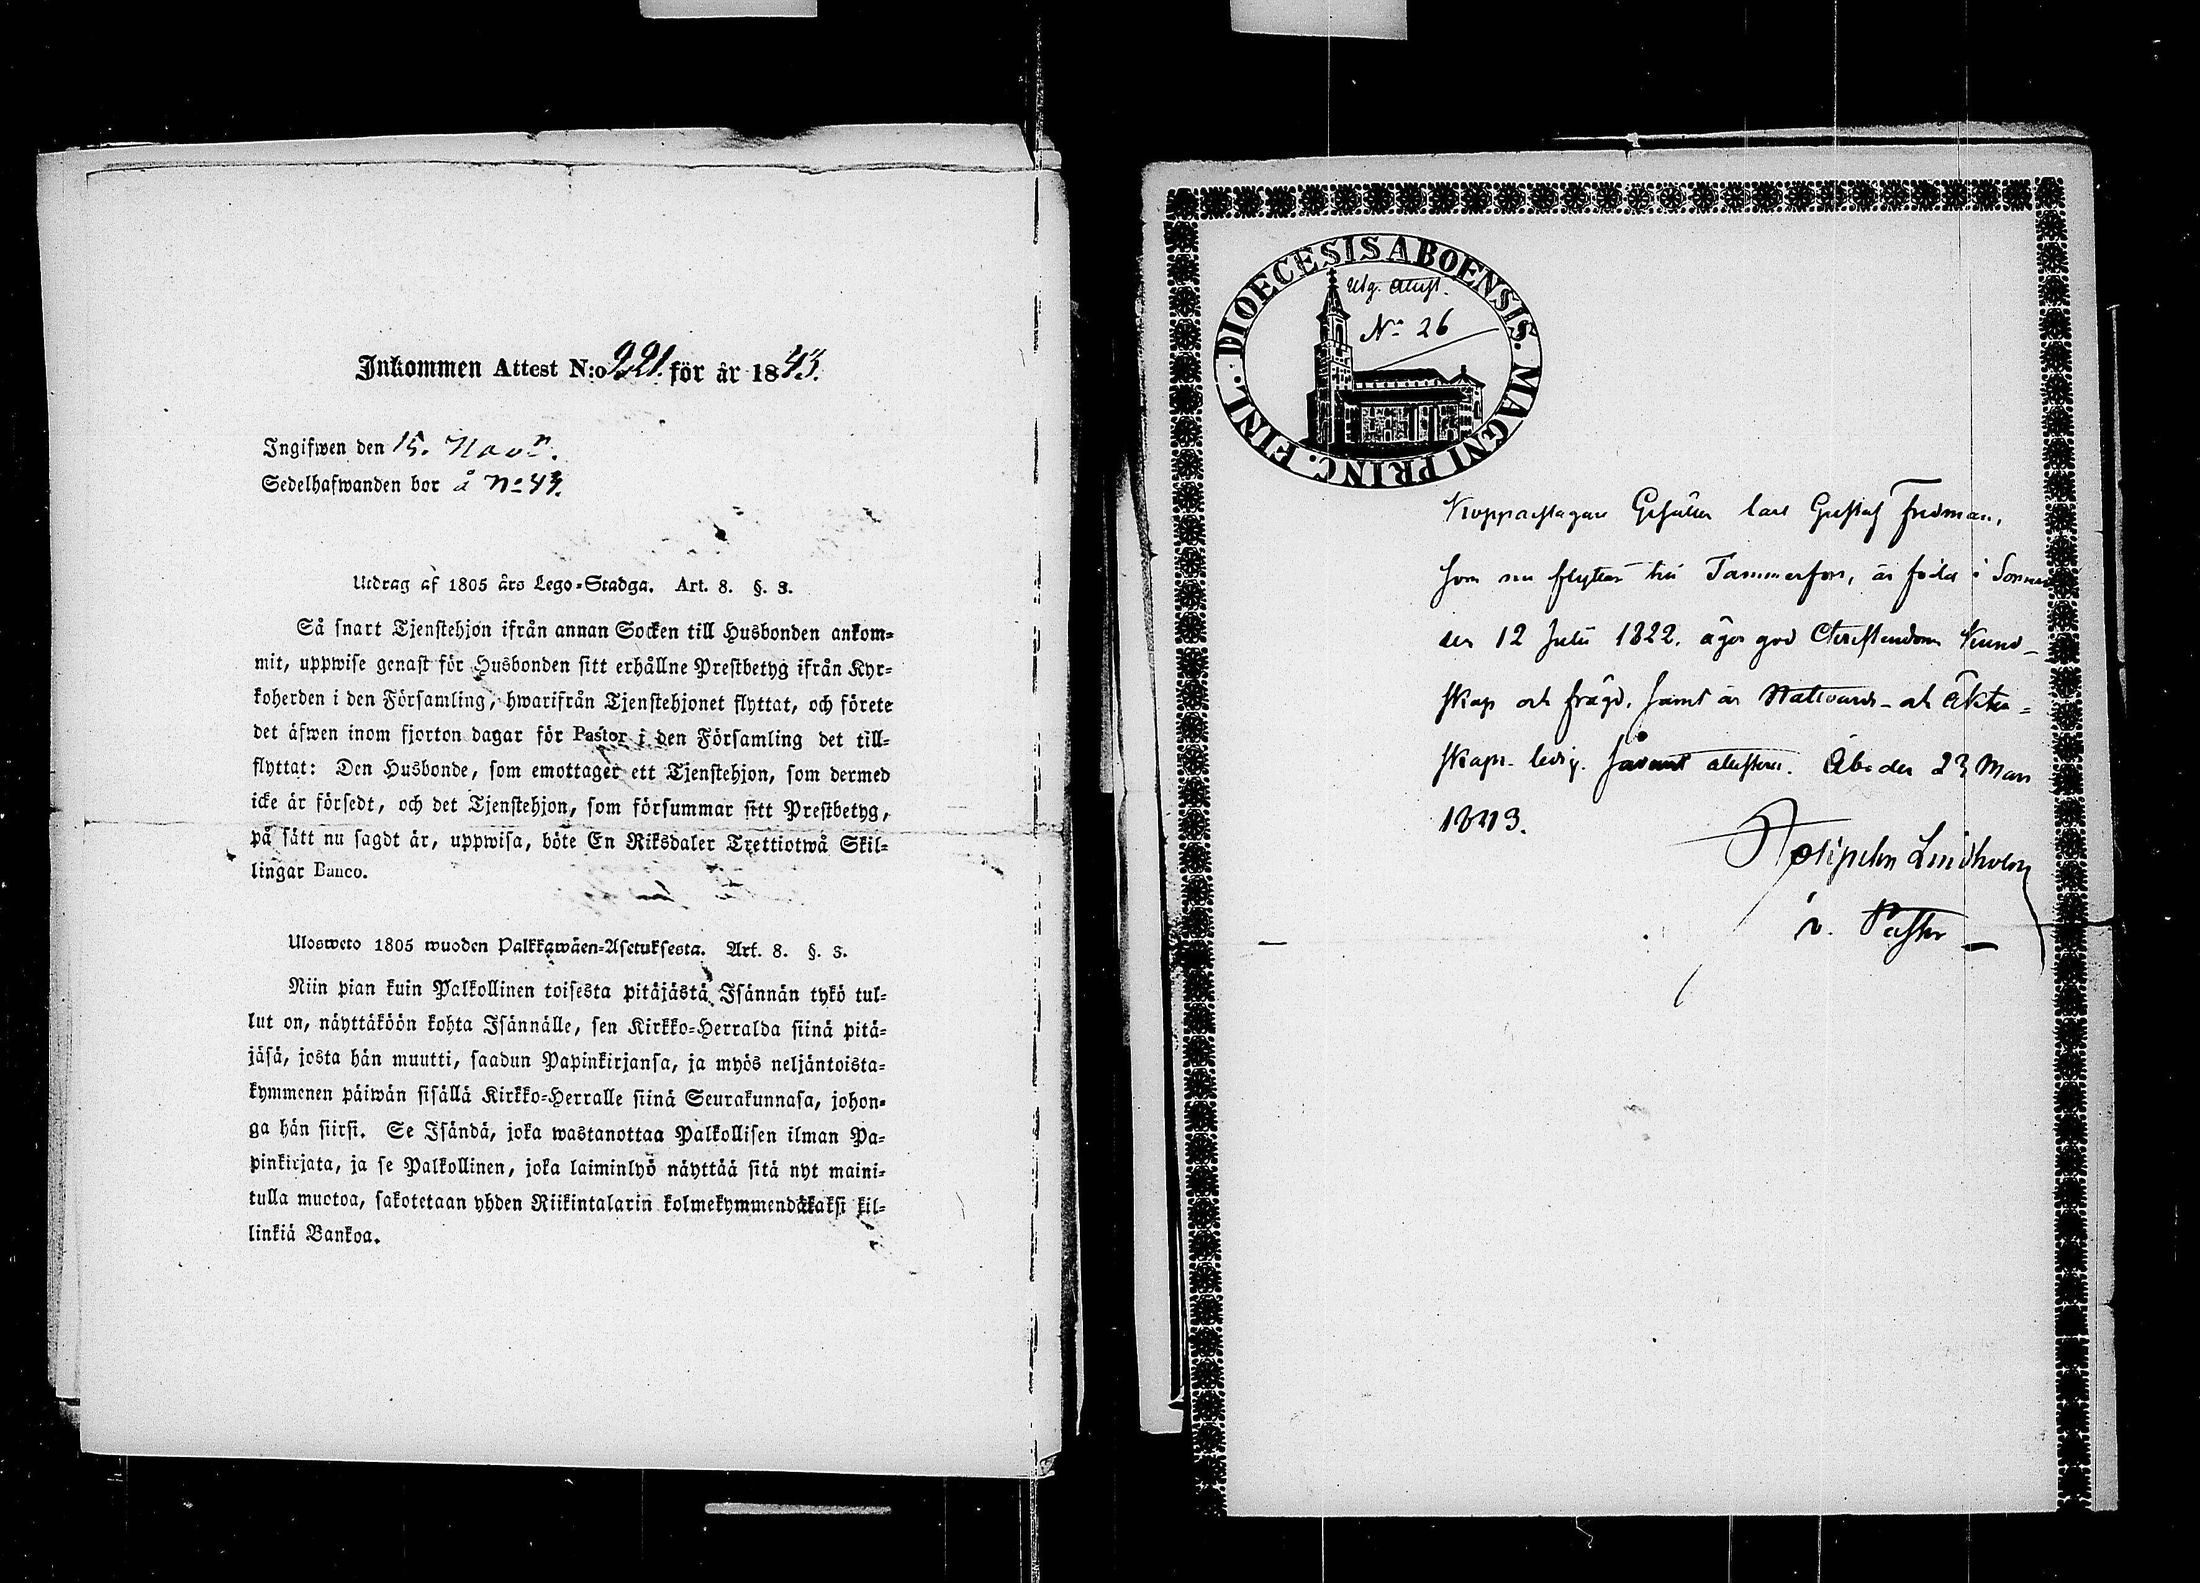 Inkommen Attest N:o 221. för år 1843.
Ingifwen den 15. Novr.
Sedelhafwanden bor å No 43.
Utdrag af 1805 års Lego-Stadga. Art. 8. §. 3.
Så snart Tjenstehjon ifrån annan Socken till Husbonden ankom-
mit, uppwise genast för Husbonden sitt erhållne Prestbetyg ifrån Kyr-
koherden i den Församling, hwarifrån Tjenstehjonet flyttat, och förete
det äfwen inom fjorton dagar för Pastor i den Församling det till-
flyttat: Den Husbonde, som emottager ett Tjenstehjon, som dermed
icke är försedt, och det Tjenstehjon, som försummar sitt Prestbetyg,
på sätt nu sagdt är, uppwisa, böte En Riksdaler Trettiotwå Skil-
lingar Banco.
Uloswето 1805 wuoden Palkkawäen-Asetuksesta. Art. 8. §. 3.
Niin pian kuin Palkollinen toisesta pitäjästä Isännän tykö tul-
lut on, näyttäköön kohta Isännälle, sen Kirkko-Herralda siinä pitä-
jäsä, josta hän muutti, saadun Papinkirjansa, ja myös neljäntoista-
kymmenen päiwän sisällä Kirkko-Herralle siinä Seurakunnasa, johon-
ga hän siirsi. Se Isändä, joka wastanottaa Palkollisen ilman Pa-
pinkirjata, ja se Palkollinen, joka laiminlyö näyttää sitä nyt maini-
tulla muotoa, sakotetaan yhden Riikintalarin kolmekymmendäkaksi kil-
linkiä Bankoa.
DIOECESIS ABOENSIS. MAGNI PRINC. FINL.
Utg. Attest.
No 26
Kopparslagare Gesällen Carl Gustaf Fridman,
som nu flyttar till Tammerfors, är född i
den 12 Julii 1822. äger god Christendoms Kund-
skap och frägd, samt är Nattvards- och Äkten-
skaps- ledig. Åbo den 23 Mars
1843.
Lindholm
v. Pastor